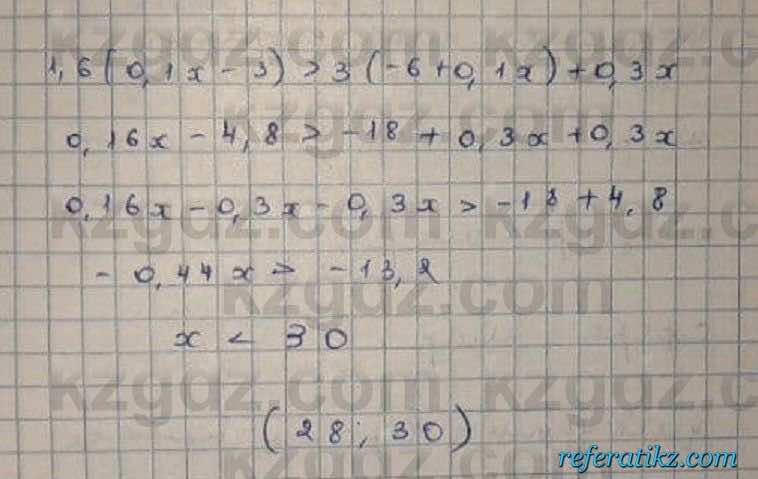 1,6(0,1x-3)>3(-6+0,1x)+0,3x
0,16x-4,8>-18+0,3x+0,3x
0,16x-0,3x-0,3x>-18+4,8
-0,44x>-13,2
x<30
(28;30)
referatikz.com
kzgdz.com
kzgdz.com
kzgdz.com
kzgdz.com
kzgdz.com